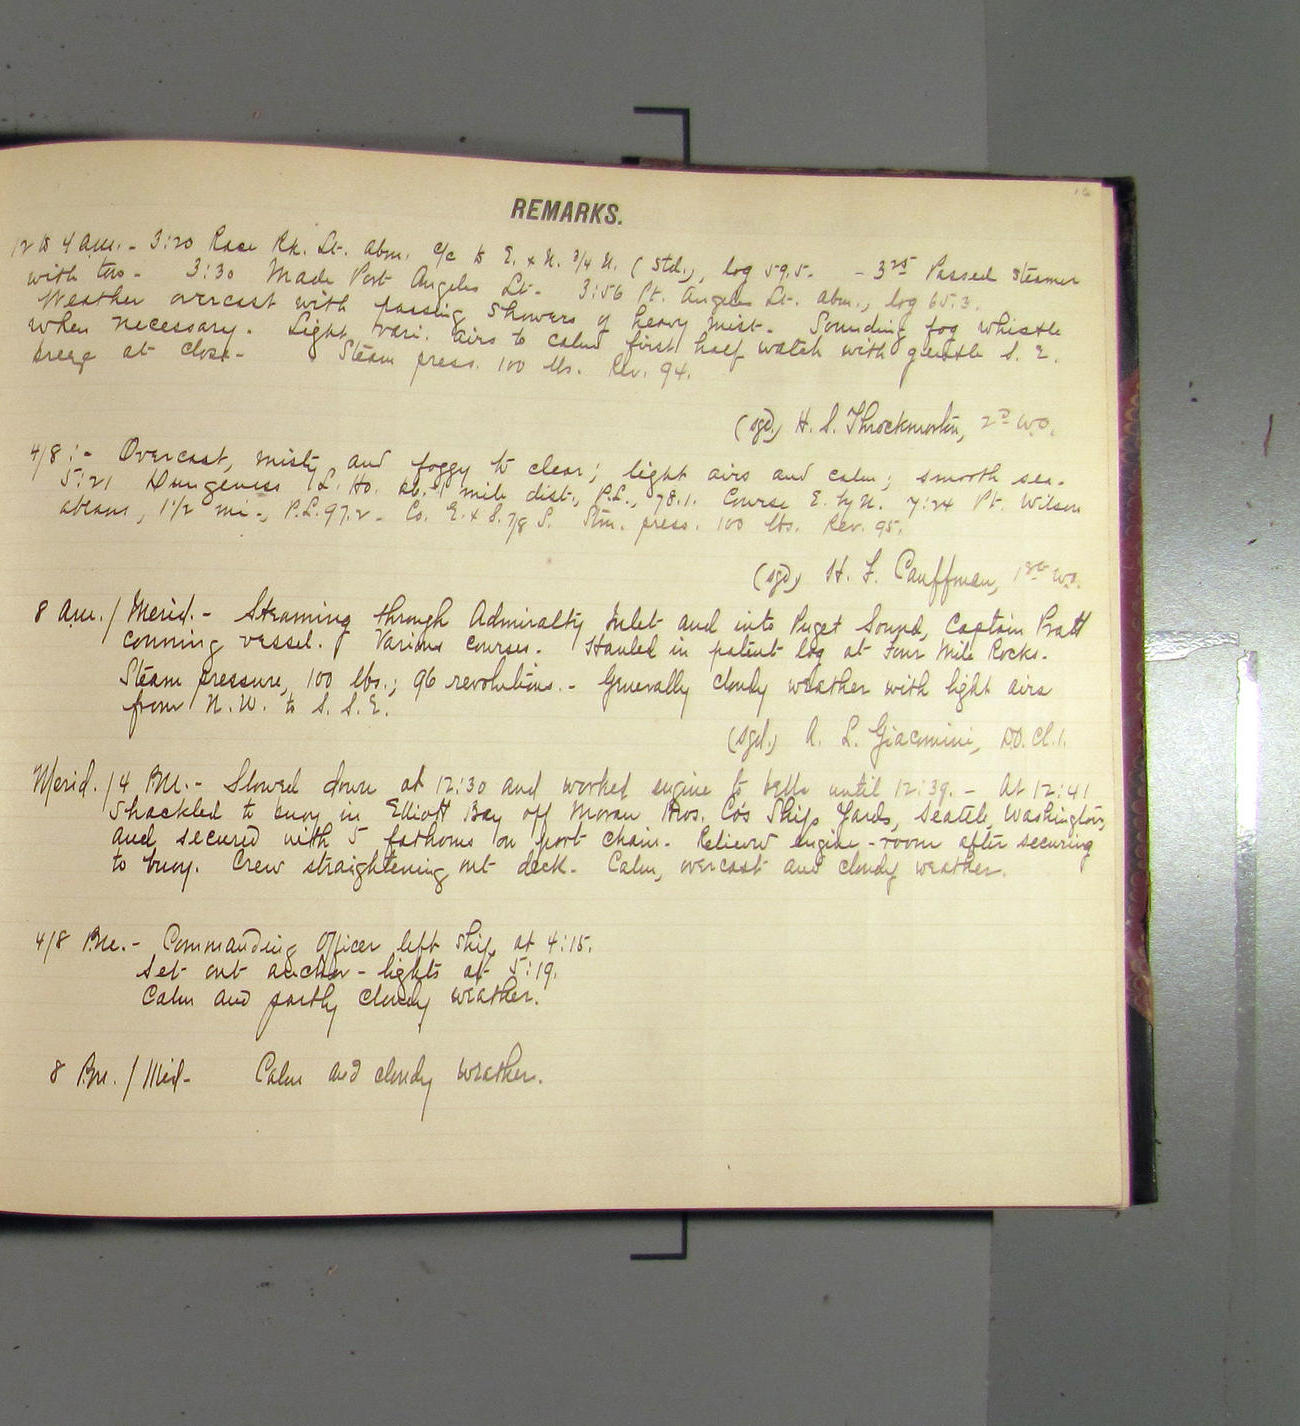 REMARKS.
12 to 4 a.m. - 3:20 Race Rk. Lt. abm. c/c to E. x N. 3/4 N. (Std.), log 59.5. - 3 25 Passed steamer
with tow - 3:30 Made Port Angeles Lt. - 3:56 Pt. Angeles Lt. abm., log 65.3.
Weather overcast with passing showers of heavy mist. Sounding fog whistle
when necessary. Light vari. airs to calm first half watch with gentle S. E.
breeze at close. Steam press. 100 lbs. Rev. 94.
(sgd.) H. S. Throckmorton, 2d W.O.
4/8:- Overcast, misty and foggy to clear; light airs and calm; smooth sea.
5:21 Dungeness L. Ho. ab. 1 mile dist., P.L., 78.1. Course E. by N. 7:24 Pt. Wilson
abeam, 1 1/2 mi., P.L. 97.2 - Co. E. x S. 7/8 S. Stm. press. 100 lbs. Rev. 95.
(sgd) H. F. Cauffman, 1st W.O.
8 a.m./Merid. - Steaming through Admiralty Inlet and into Puget Sound, Captain Pratt
conning vessel. Various courses. Hauled in patent log at Four Mile Rocks.
Steam pressure, 100 lbs.; 96 revolutions. - Generally cloudy weather with light airs
from N.W. to S. S. E.
(sgd.) A. L. Giacomini,
Merid./4 P.M. - Slowed down at 12:30 and worked engine to bells until 12:39. - At 12:41
shackled to buoy in Elliott Bay off Moran Bros. Co's Ship Yards, Seattle, Washington,
and secured with 5 fathoms on port chain. Relieved engine-room after securing
to buoy. Crew straightening out deck. Calm, overcast and cloudy weather.
4/8 P.M. - Commanding Officer left ship at 4:15.
Set out anchor-lights at 5:19.
Calm and partly cloudy weather.
8 P.M./Mid- Calm and cloudy weather.